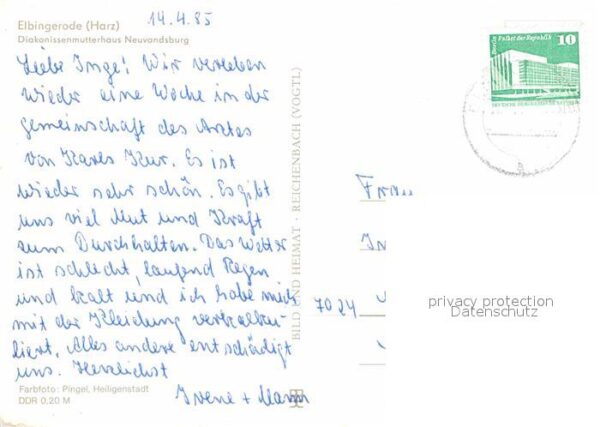 Elbingerode (Harz)
14.4.85
Diakonissenmutterhaus Neuvandsburg
Liebe Inge! Wir verleben
wieder eine Woche in der
gemeinschaft des Arztes
von Karls Kur. Es ist
wieder sehr schön. Es gibt
uns viel Mut und Kraft
zum Durchhalten. Das Wetter
ist schlecht, laufend Regen
und kalt und ich habe mich
mit der Kleidung verkalku-
liert. Alles andere entschädigt
uns. Herzlichst
Irene + Mann
Farbfoto: Pingel, Heiligenstadt
DDR 0,20 M
BILD UND HEIMAT · REICHENBACH (VOGTL)
Berlin Palast der Republik
10
Frau
In
7024
privacy protection
Datenschutz